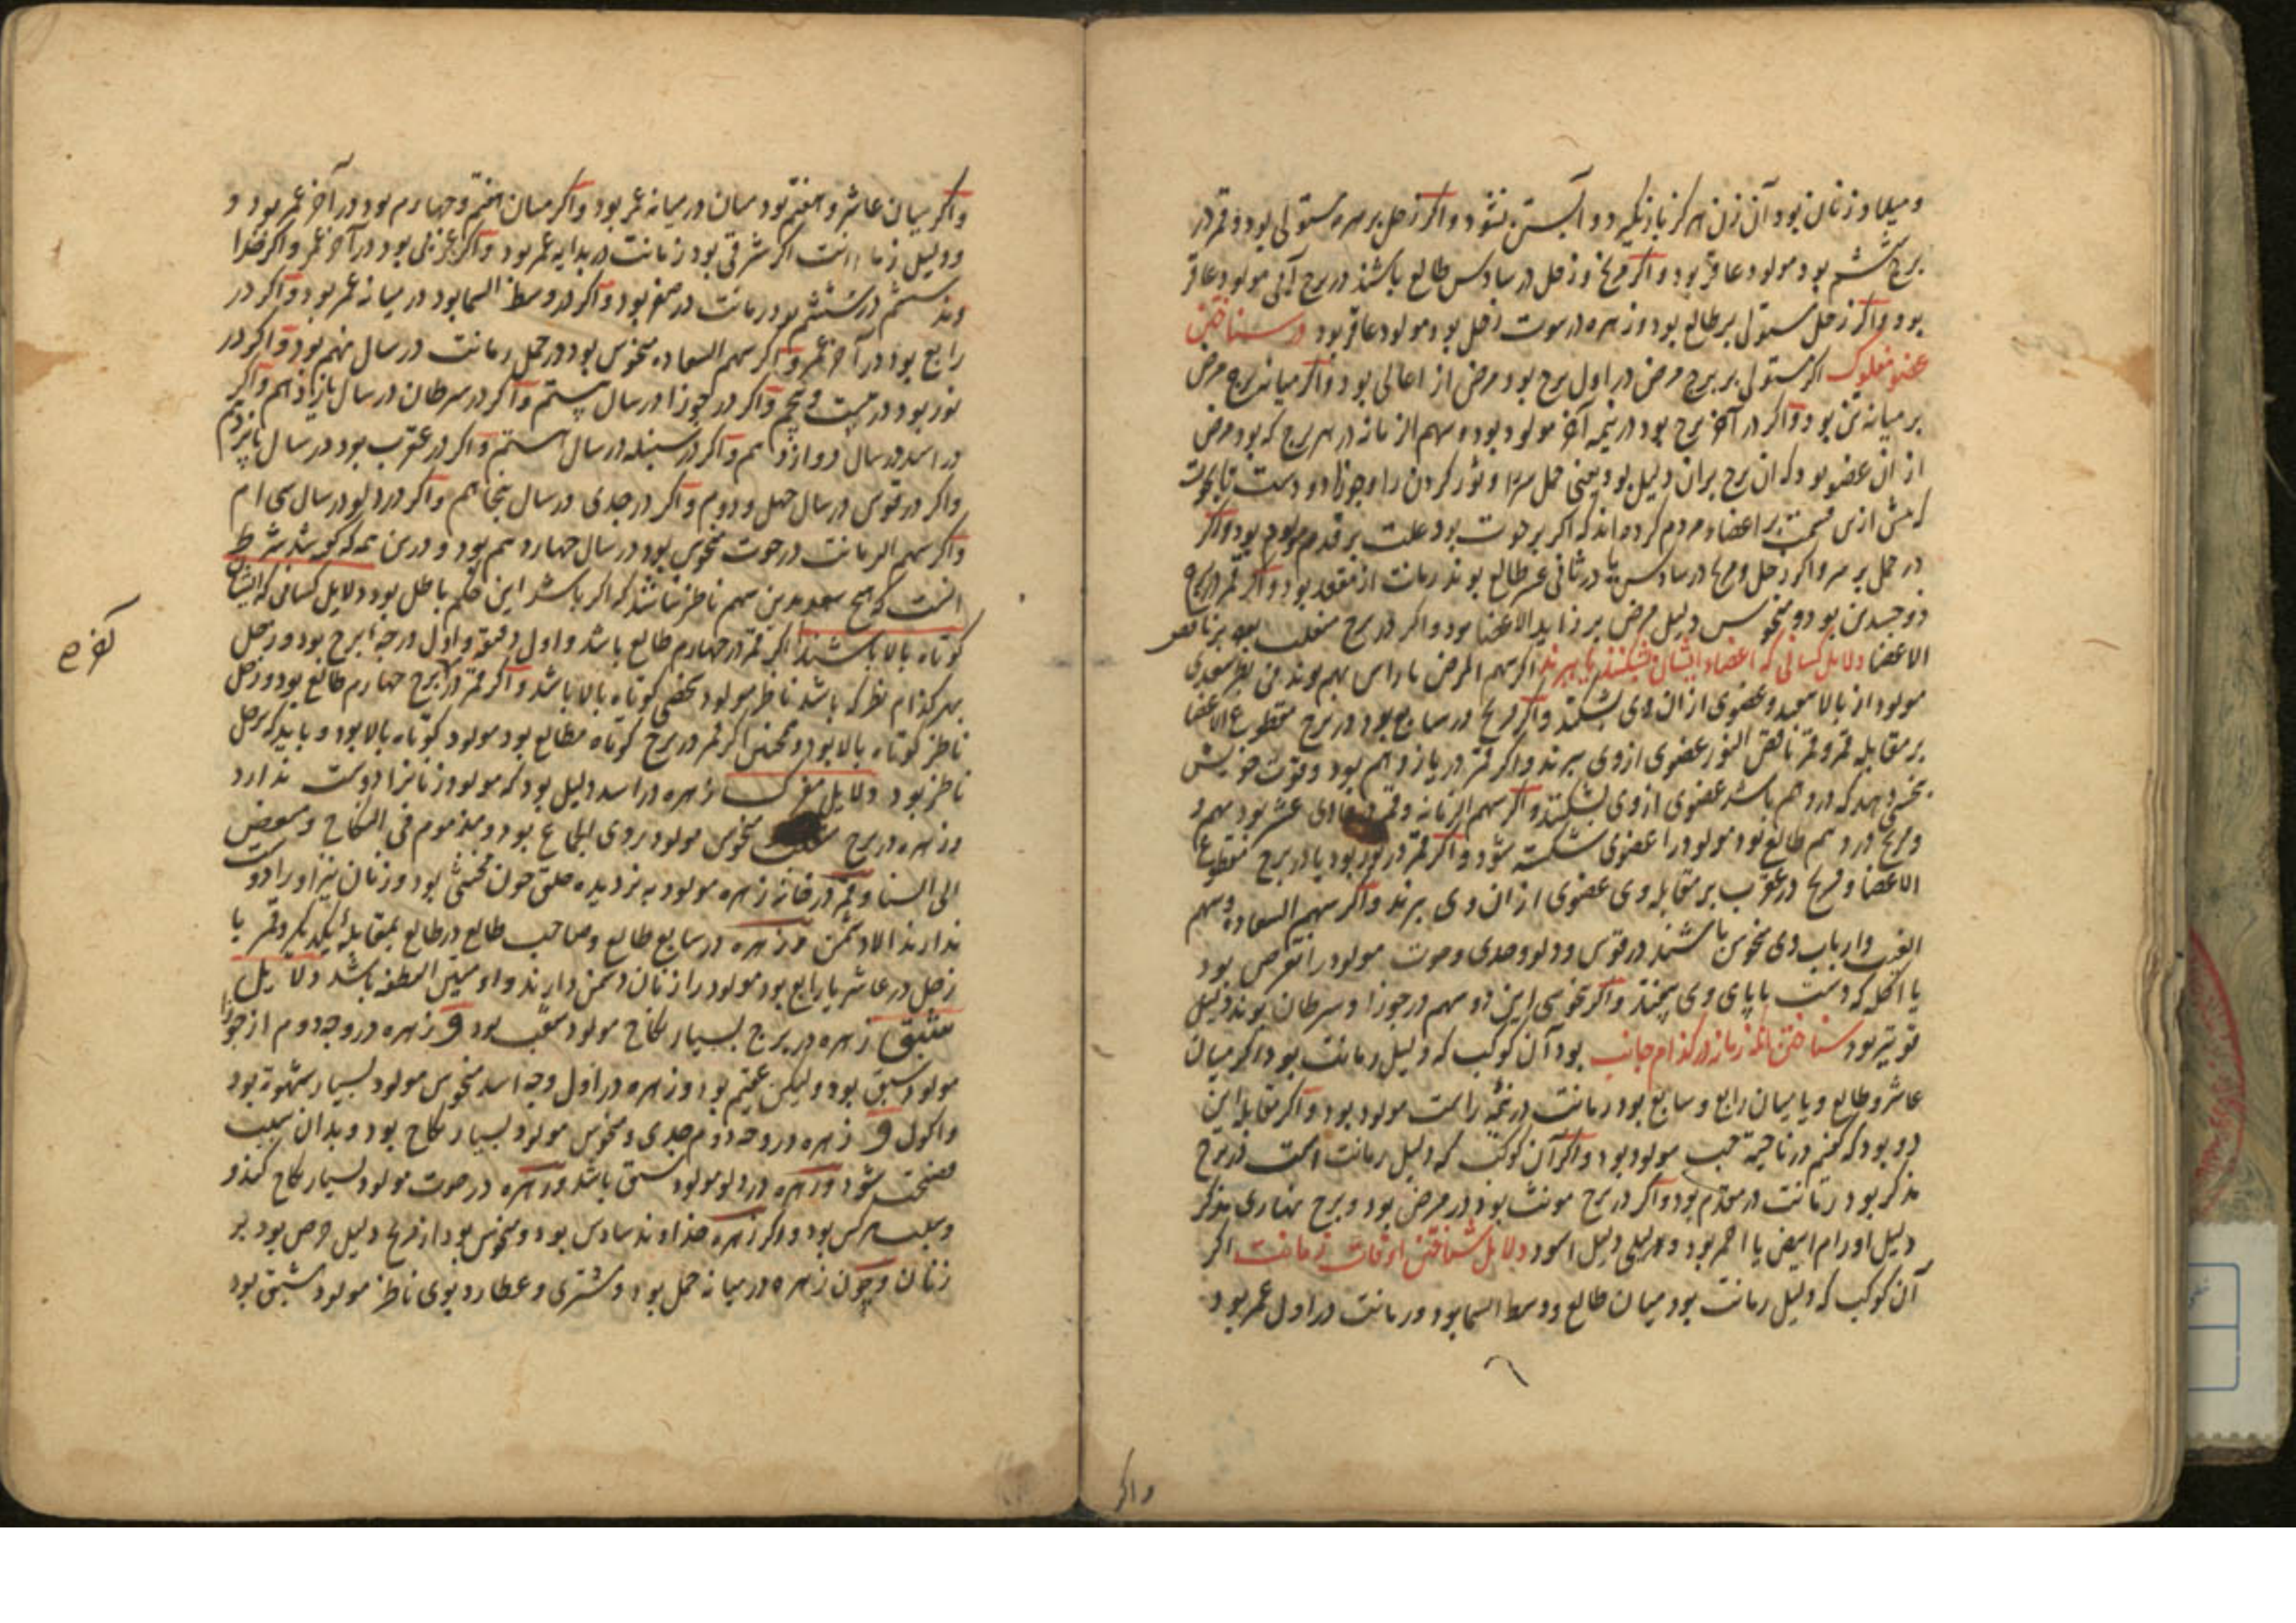 و میلاد زنان بود آن زن هرکز باز نکیرد و آبستن نشود و اکر زحل بر زهره مستولی بود و قمر در
برج ششم بود مولود عاقر بود و اکر مریخ و زحل در سادس طالع باشند در برج آبی مولود عاقر
بود و اکر زحل مستولی بر طالع بود و زهره در بیوت زحل بود مولود عاقر بود در شناختن
عضو مفلوک اکر مستولی بر برج مرض در اول برج بود مرض از اعالی بود و اکر میانه برج مرض
بر میانه تن بود و اکر در آخر برج بود در نیمه آخر مولود بود و سهم الزمانه در هر برج که بود مرض
از ان عضو بود که ان برج بران دلیل بود یعنی حمل سر را و ثور کردن را و جوزا دو دست تا بحوت
که پیش ازین قسمت بر اعضاء مردم کرده اند که اکر بر حوت بود علت بر قدم مولود بود و اکر
در حمل بر سر و اکر زحل و مریخ در سادس یا در ثانی عشر طالع بوند زمانت از مقعد بود و اکر قمر در برج
ذو جسدین بود و منحوس دلیل مرض بر زاید الاعضا بود و اکر در برج منقلب بود بر ناقص
الاعضا دلایل کسانی که اعضاء ایشان بشکنند یا ببرند اکر سهم المرض با راس بهم بوند بی نظر سعدی
مولود از بالا بیفتد و عضوی از ان وی بشکند و اکر مریخ در سابع بود در برج مقطوع الاعضا
بر مقابله قمر و قمر ناقص النور عضوی از وی ببرند و اکر قمر در یازدهم بود و قوت خویش
بنحسی دهد که در دهم باشد عضوی از وی بشکند و اکر سهم الزمانه و قمر در حادی عشر بود بهم و
مریخ در دهم طالع بود مولود را عضوی شکسته شود و اکر قمر در ثور بود یا در برج مقطوع
الاعضا و مریخ در عقرب بر مقابله وی عضوی از ان وی ببرند و اکر سهم السعاده و سهم
الغیب و ارباب وی منحوس باشند در قوس و دلو و جدی و حوت مولود را نقرس بود
یا اکله که دست یا پای وی بیفتند و اکر نحوسی این دو سهم در جوزا و سرطان بوند دلیل
قویتر بود شناختن انکه زمانه در کدام جانب بود آن کوکب که دلیل زمانت بود اکر میان
عاشر و طالع و یا میان رابع و سابع بود زمانت در نیمه راست مولود بود و اکر مقابله این
دو بود که کفتم در ناحیه چپ مولود بود و اکر آن کوکب که دلیل زمانت است در برج
مذکر بود زمانت در مقدم بود و اکر در برج مونث بود در مرض بود و برج نهاری مذکر
دلیل اورام ابیض یا احمر بود و لیلی دلیل اسود دلایل شناختن اوقات زمانت اکر
آن کوکب که دلیل زمانت بود میان طالع و وسط السما بود زمانت در اول عمر بود
و اکر
و اکر میان عاشر و هفتم بود میان در میانه عمر بود و اکر میان هفتم و چهارم بود در آخر عمر بود و
دلیل زمانت اکر شرقی بود زمانت در بدایه عمر بود و اکر غربی بود در آخر عمر و اکر خدا
وند ششم در ششم بود زمانت در صغر بود و اکر در وسط السما بود در میانه عمر بود و اکر در
رابع بود در آخر عمر و اکر سهم السعاده منحوس بود در حمل زمانت در سال نهم بود و اکر در
ثور بود در بیست و پنجم و اکر در جوزا در سال بیستم و اکر در سرطان در سال یازدهم و اکر
در اسد در سال دوازدهم و اکر در سنبله در سال هشتم و اکر در عقرب بود در سال پانزدهم
و اکر در قوس در سال چهل و دوم و اکر در جدی در سال پنجاهم و اکر در دلو در سال سی ام
و اکر سهم الزمانت در حوت منحوس بود در سال چهاردهم بود و درین همه که کفته شد شرط
انست که هیچ سعد بدین سهم ناظر نباشد که اکر باشد این حکم باطل بود دلایل کسانی که ایشان
کوتاه بالا باشند اکر قمر در چهارم طالع باشد و اول دقیقه و اول درجه برج بود و زحل
بهر کدام نظر که باشد ناظر مولود شخصی کوتاه بالا باشد و اکر قمر در برج چهارم طالع بود و زحل
ناظر کوتاه بالا بود و همچنین اکر قمر در برج کوتاه مطالع بود مولود کوتاه بالا بود و باید که زحل
ناظر بود دلایل زهره در اسد دلیل بود که مولود زنانرا دوست ندارد
و زهره در برج منحوس مولود بروی لجاع بود و مذموم فی النکاح و مبغوض
الی النسا و قمر در خانه زهره مولود به نزدیک خلق چون مخنثی بود و زنان نیز او را دوست
ندارند الا دشمن و زهره در سابع طالع و صاحب طالع در طالع بمقابله یکدیکر و قمر با
زحل در عاشر یا رابع بود مولود را زنان دشمن دارند و او مهین النطفه باشد دلایل
شبق زهره در برج بسیار نکاح مولود شبق بود و زهره در وجه دوم از جوزا
مولود شبق بود ولیکن عقیم بود و زهره در اول وجه اسد منحوس مولود بسیار شهوت بود
و اکول و زهره در وجه دوم جدی و منحوس مولود بسیار نکاح بود و بدان سبب
فضیحت شود و زهره در دلو مولود شبق باشد و زهره در حوت مولود بسیار نکاح کند و
بود و اکر زهره خداوند سادس بود و منحوس بود از مریخ دلیل حرص بود بر
زنان و چون زهره در میانه حمل بود و مشتری و عطارد بوی ناظر مولود شبق بود